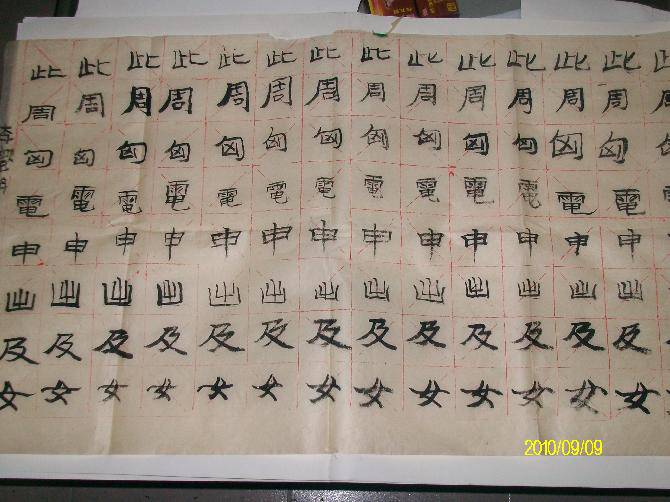 此此此此此此此此此此此此此
周周周周周周周周周周周周周
匈匈匈匈匈匈匈匈匈匈匈匈匈
電電電電電電電電電電電電電
申申申申申申申申申申申申申
出出出出出出出出出出出出出
及及及及及及及及及及及及及
女女女女女女女女女女女女女
2010/09/09